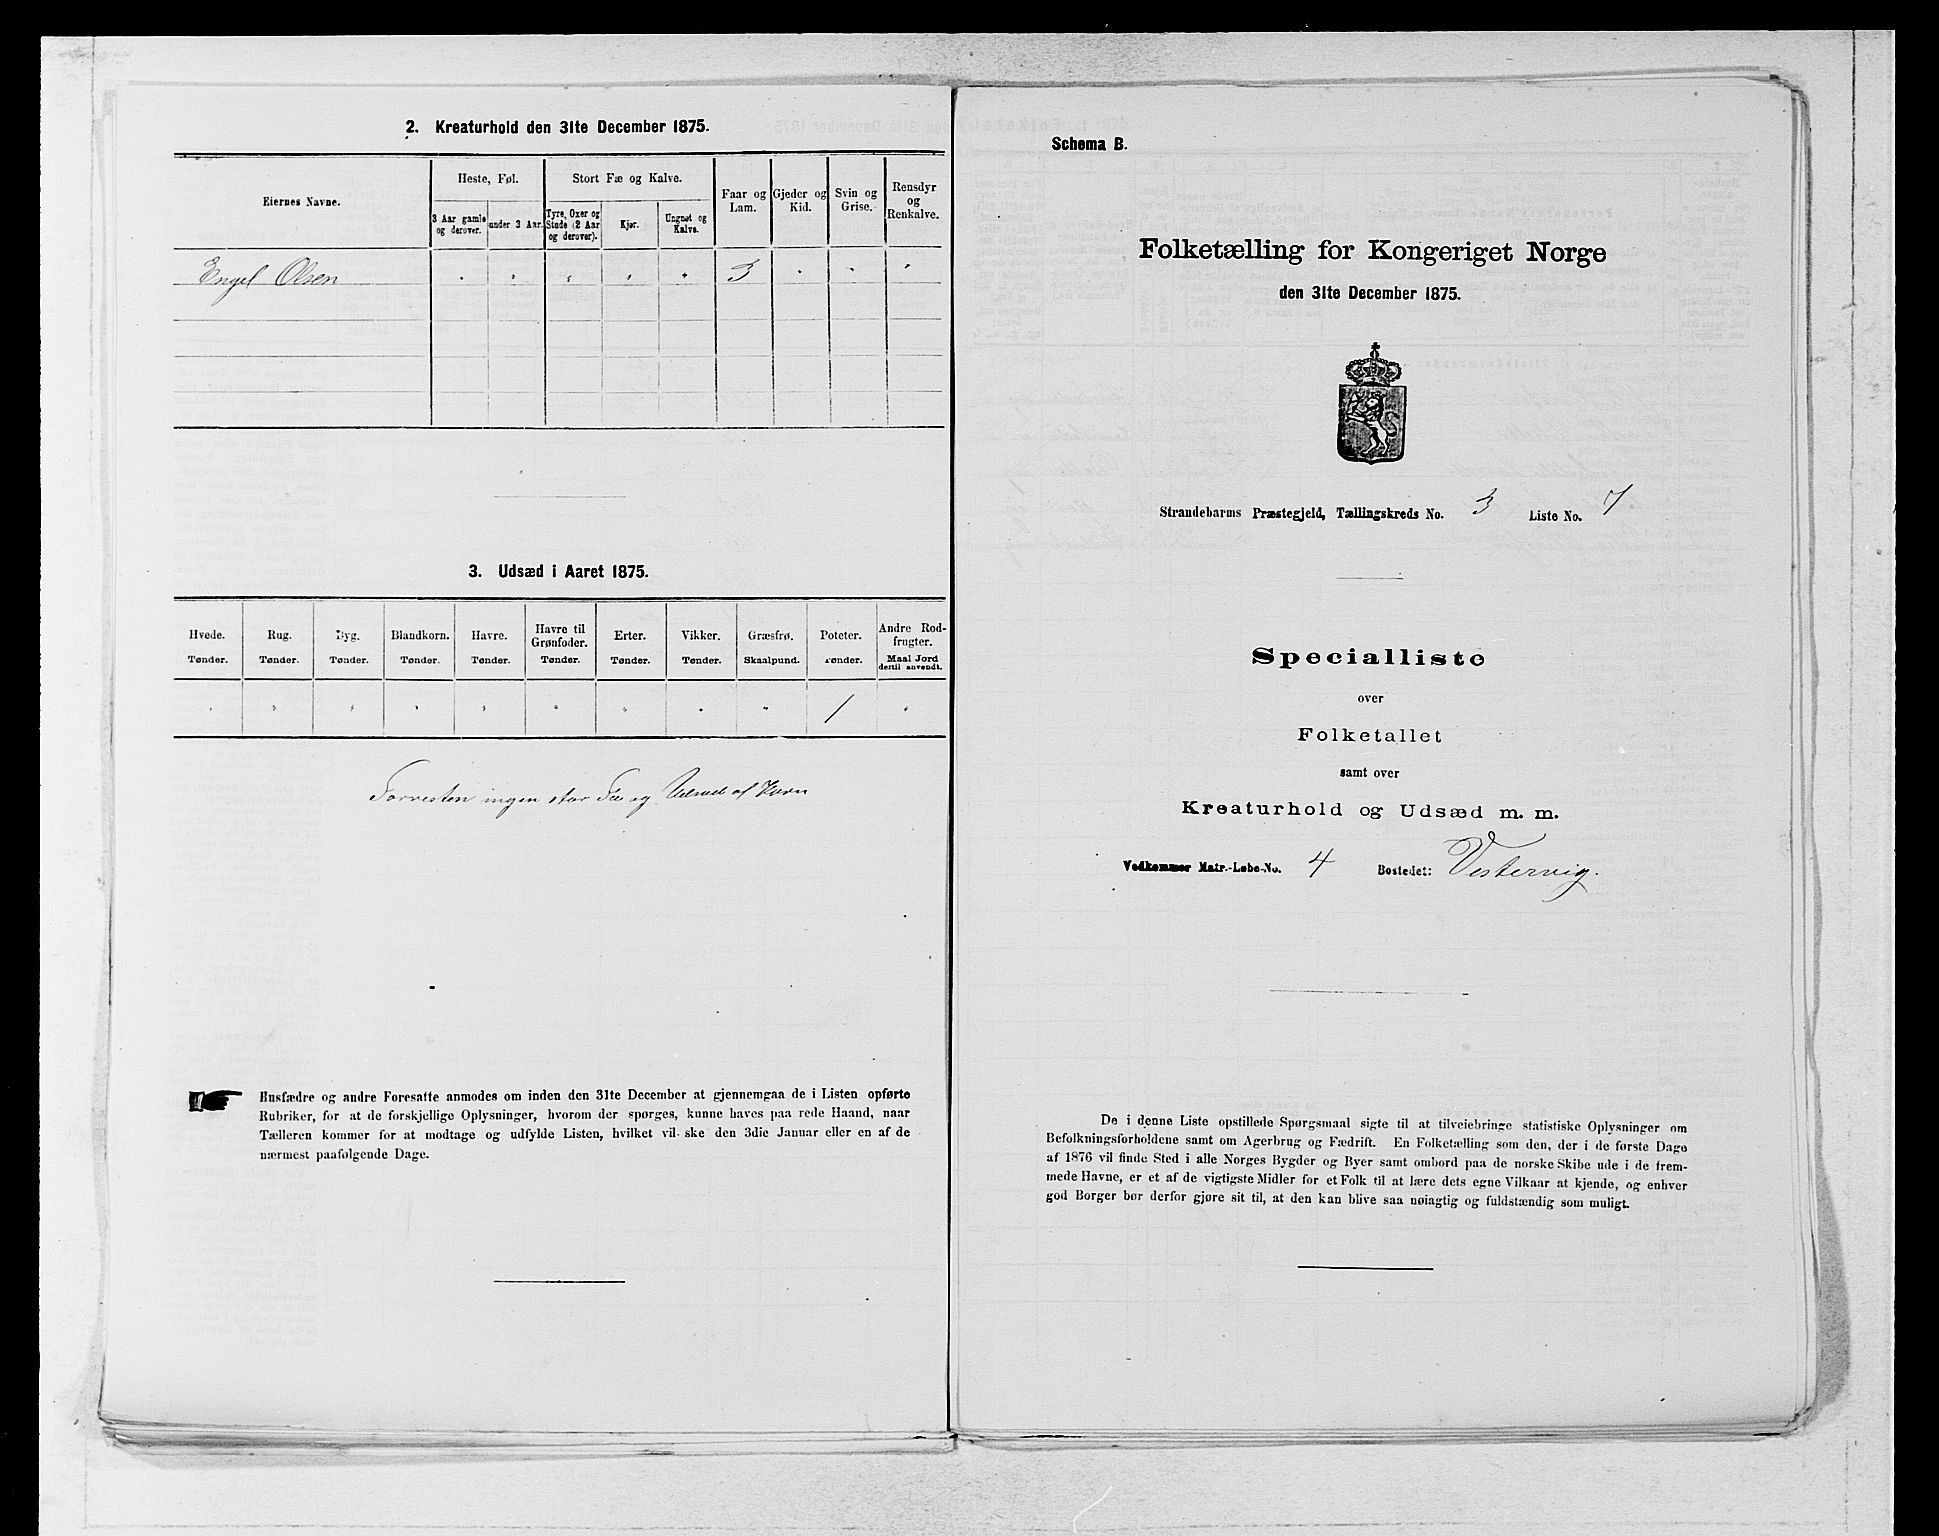 2. Kreaturhold den 31te December 1875.
Eiernes Navne.
Heste, Føl.
Stort Fæ og Kalve.
Faar og Lam.
Gjeder og Kid.
Svin og Grise.
Rensdyr og Renkalve.
3 Aar gamle og derover.
under 3 Aar.
Tyre, Oxer og Stude (2 Aar og derover).
Kjør.
Ungnøt og Kalve.
Engel Olsen " " " " " 3 " " "
3. Udsæd i Aaret 1875.
Hvede. Rug. Byg. Blandkorn. Havre. Havre til Grønfoder. Erter. Vikker. Græsfrø. Poteter. Andre Rodfrugter.
Tønder. Tønder. Tønder. Tønder. Tønder. Tønder. Tønder. Tønder. Skaalpund. Tønder. Maal Jord dertil anvendt.
" " " " " " " " " 1 "
Forresten ingen stor Fæ og Udsæd af Korn
Husfædre og andre Foresatte anmodes om inden den 31te December at gjennemgaa de i Listen opførte
Rubriker, for at de forskjellige Oplysninger, hvorom der spørges, kunne haves paa rede Haand, naar
Tælleren kommer for at modtage og udfylde Listen, hvilket vil ske den 3die Januar eller en af de
nærmest paafølgende Dage.
Schema B.
Folketælling for Kongeriget Norge
den 31te December 1875.
Strandebarms Præstegjeld, Tællingskreds No. 3 Liste No. 7
Specialliste
over
Folketallet
samt over
Kreaturhold og Udsæd m. m.
Vedkommer Matr.-Løbe-No. 4 Bostedet: Vestervig.
De i denne Liste opstillede Spørgsmaal sigte til at tilveiebringe statistiske Oplysninger om
Befolkningsforholdene samt om Agerbrug og Fædrift. En Folketælling som den, der i de første Dage
af 1876 vil finde Sted i alle Norges Bygder og Byer samt ombord paa de norske Skibe ude i de frem-
mede Havne, er et af de vigtigste Midler for et Folk til at lære dets egne Vilkaar at kjende, og enhver
god Borger bør derfor gjøre sit til, at den kan blive saa nøiagtig og fuldstændig som muligt.